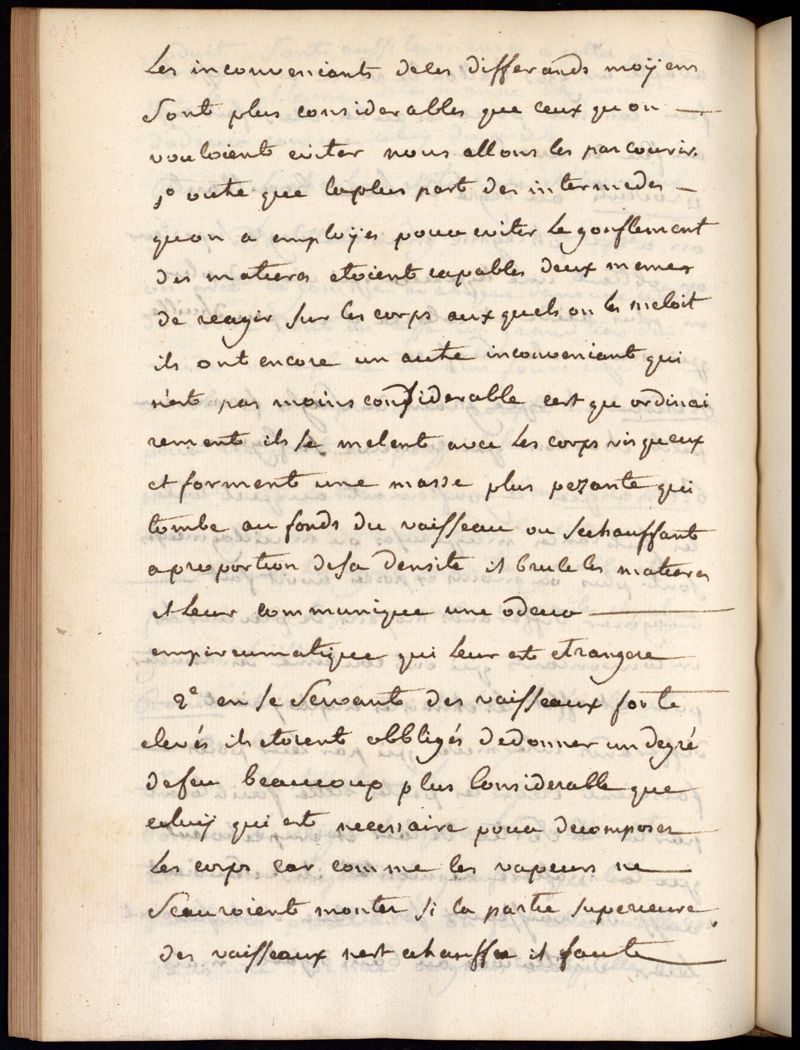 Les inconveniants de les differands moÿens
Sont plus considerables que ceux quon
vouloient eviter nous allons les parcourir.
1º outre que la plus part des intermedes
quon a emploÿes pour eviter le gonflement
des matieres etoient capables deux memes
de reagir sur les corps aux quels on les meloit
ils ont encore un autre inconveniant qui
n'est pas moins considerable cest que ordinai
rement ils se melent avec les corps visqueux
et forment une masse plus pezante qui
tombe au fonds du vaisseau ou sechauffant
a proportion de sa densité il brule les matieres
et leur communique une odeur
empireumatique qui leur est etrangere
2º en se servant des vaisseaux forte
elevés ils etoient obbligés de donner un degré
de feu beaucoup plus considerable que
celuÿ qui est necessaire pour decomposer
les corps car comme les vapeurs ne
Seauroient monter si la partie superieure
des vaisseaux nest echauffee il faut